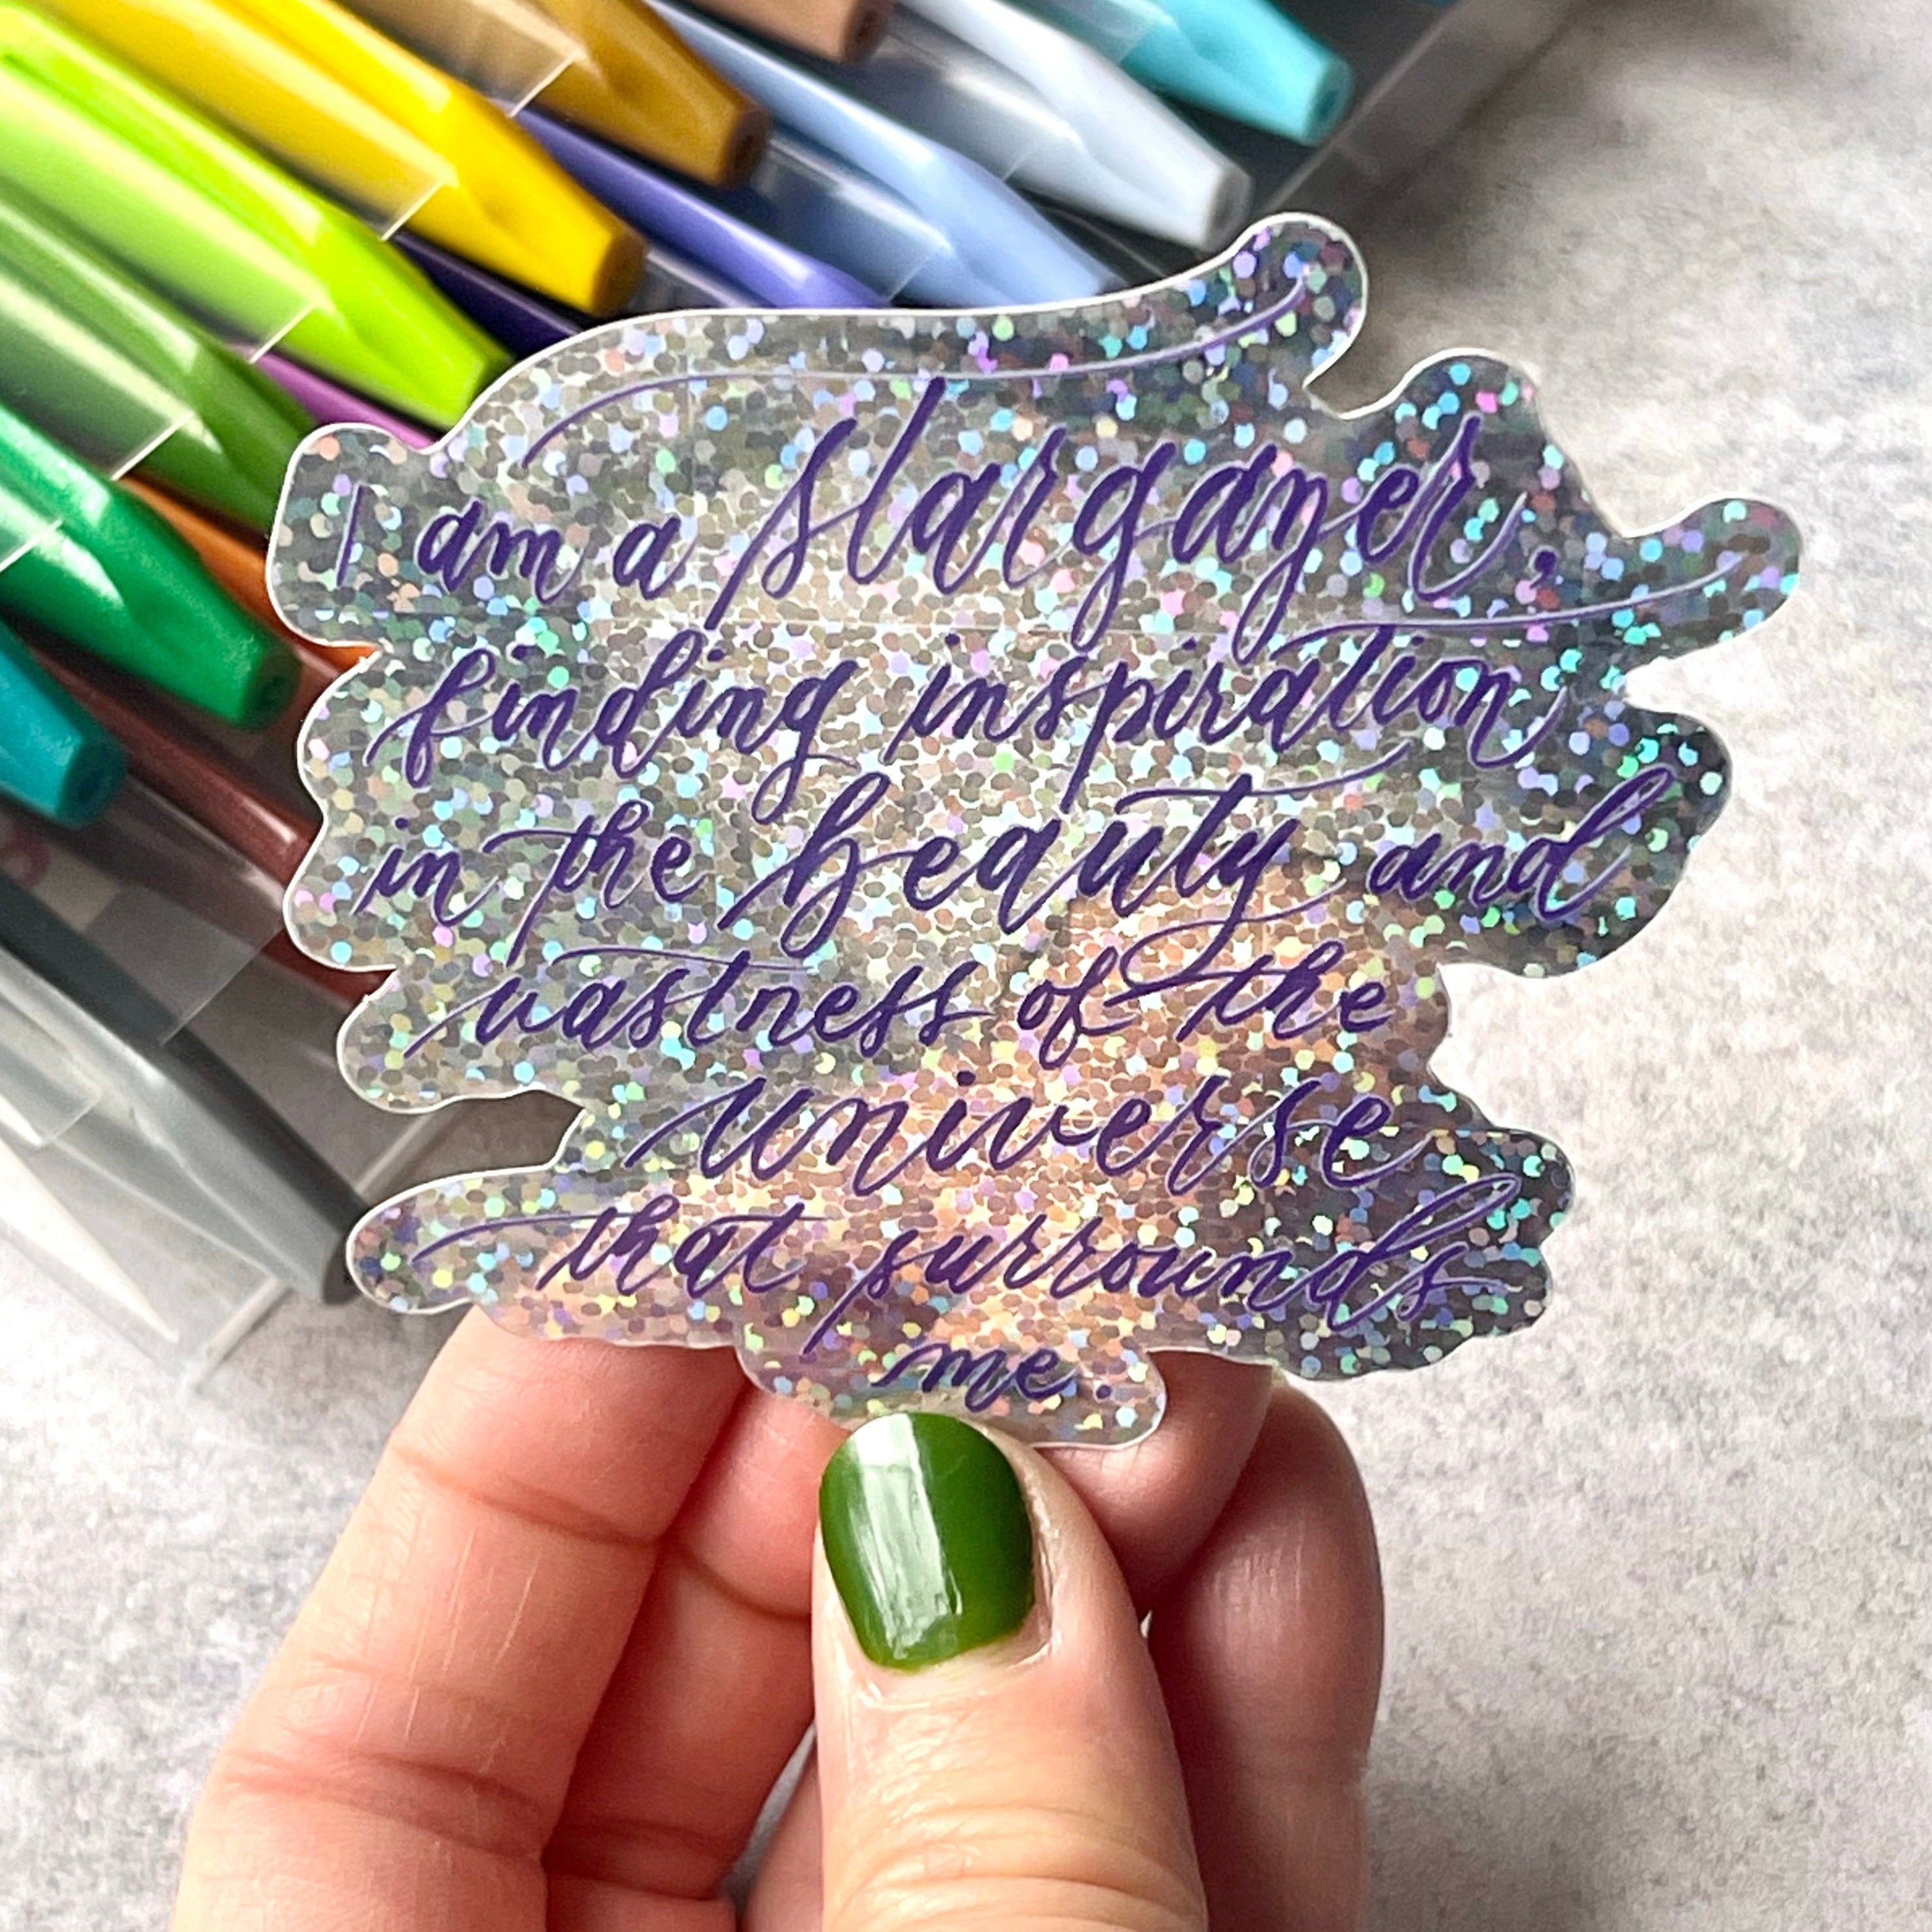 I am a stargazer,
finding inspiration
in the beauty and
vastness of the
universe
that surrounds
me.